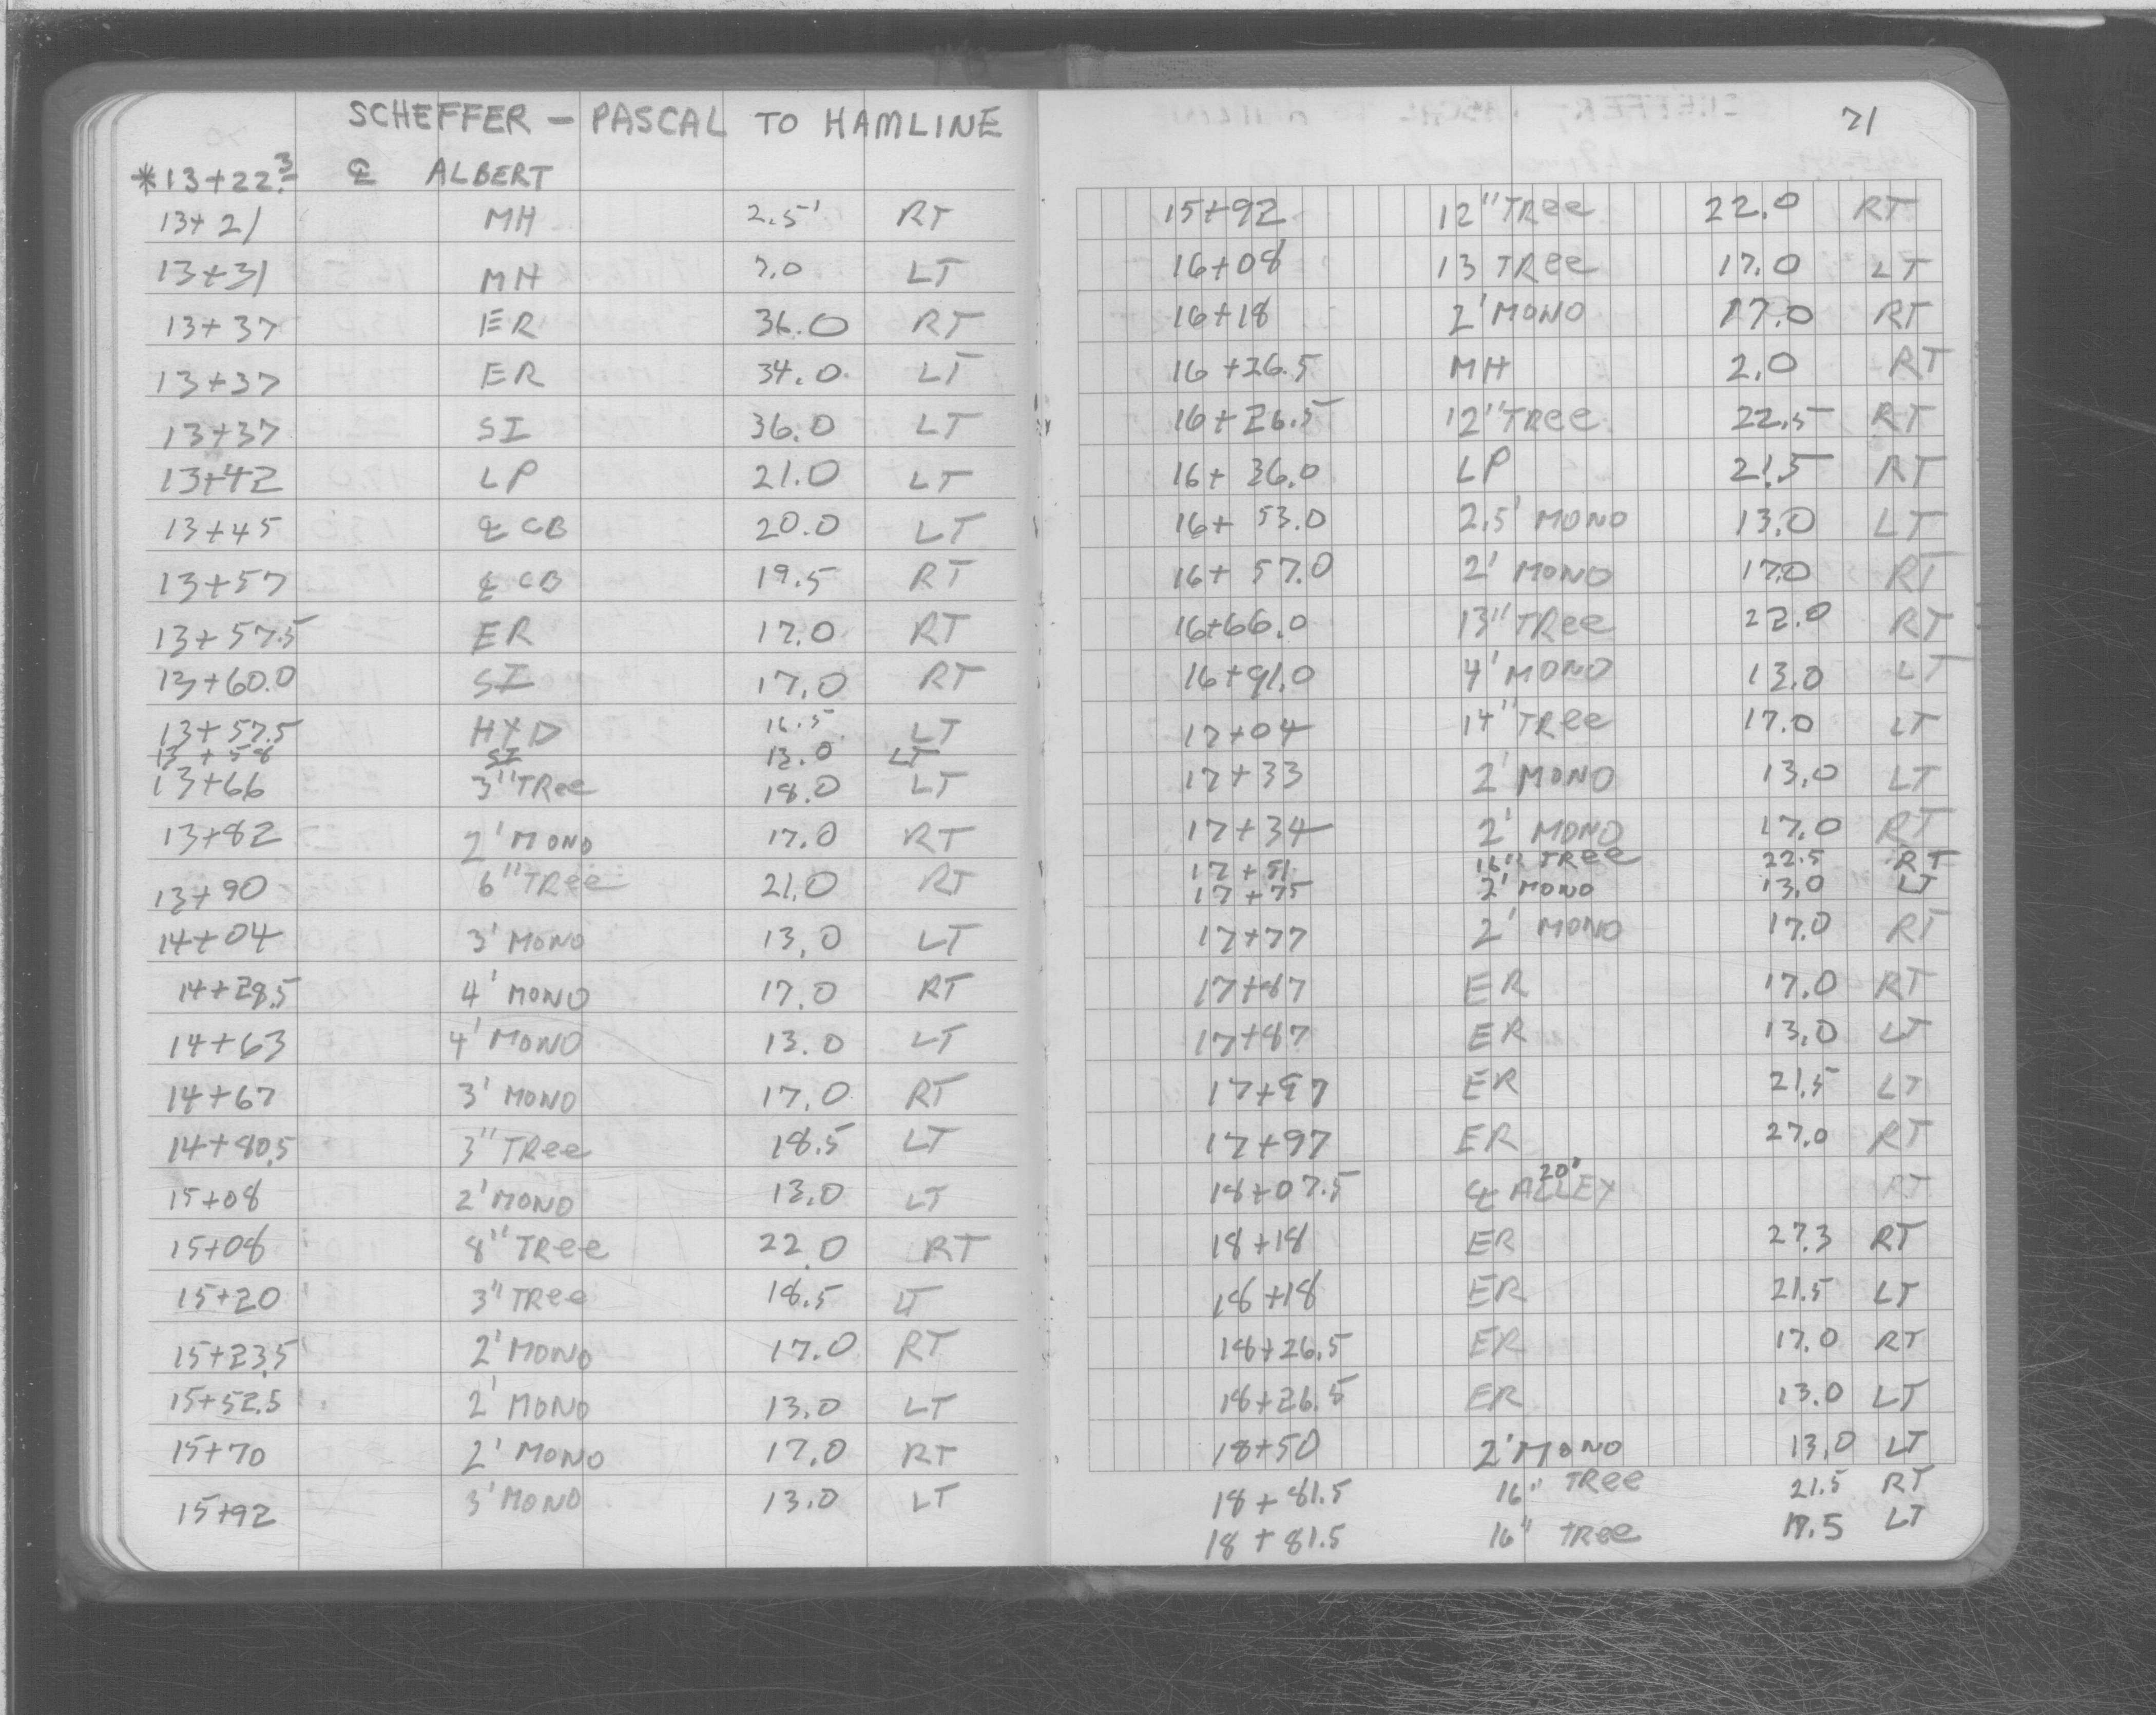 SCHEFFER - PASCAL TO HAMLINE
*13+22.3 ℄ ALBERT
13+21 MH 2.5' RT
13+31 MH 7.0 LT
13+37 ER 36.0 RT
13+37 ER 34.0 LT
13+37 SI 36.0 LT
13+42 LP 21.0 LT
13+45 ℄ CB 20.0 LT
13+57 ℄ CB 19.5 RT
13+57.5 ER 17.0 RT
13+60.0 SI 17.0 RT
13+57.5 HYD 16.5 LT
13+58 SI 13.0 LT
13+66 3" TRee 18.0 LT
13+82 2' MONO 17.0 RT
13+90 6" TRee 21.0 RT
14+04 3' MONO 13.0 LT
14+28.5 4' MONO 17.0 RT
14+63 4' MONO 13.0 LT
14+67 3' MONO 17.0 RT
14+80.5 3" TRee 18.5 LT
15+08 2' MONO 13.0 LT
15+08 8" TRee 22.0 RT
15+20 3" TRee 18.5 LT
15+23.5 2' MONO 17.0 RT
15+52.5 2' MONO 13.0 LT
15+70 2' MONO 17.0 RT
15+92 3' MONO 13.0 LT
71
15+92 12" TRee 22.0 RT
16+08 13 TRee 17.0 LT
16+18 2' MONO 17.0 RT
16+26.5 MH 2.0 RT
16+26.5 12" TRee 22.5 RT
16+36.0 LP 21.5 RT
16+53.0 2.5' MONO 13.0 LT
16+57.0 2' MONO 17.0 RT
16+66.0 13" TRee 22.0 RT
16+91.0 4' MONO 13.0 LT
17+04 14" TRee 17.0 LT
17+33 2' MONO 13.0 LT
17+34 2' MONO 17.0 RT
17+51 16" TRee 22.5 RT
17+75 2' MONO 13.0 LT
17+77 2' MONO 17.0 RT
17+87 ER 17.0 RT
17+87 ER 13.0 LT
17+97 ER 21.5 LT
17+97 ER 27.0 RT
18+07.5 ℄ 20' ALLEY RT
18+18 ER 27.3 RT
18+18 ER 21.5 LT
18+26.5 ER 17.0 RT
18+26.5 ER 13.0 LT
18+50 2' MONO 13.0 LT
18+81.5 16" TRee 21.5 RT
18+81.5 16" TRee 17.5 LT